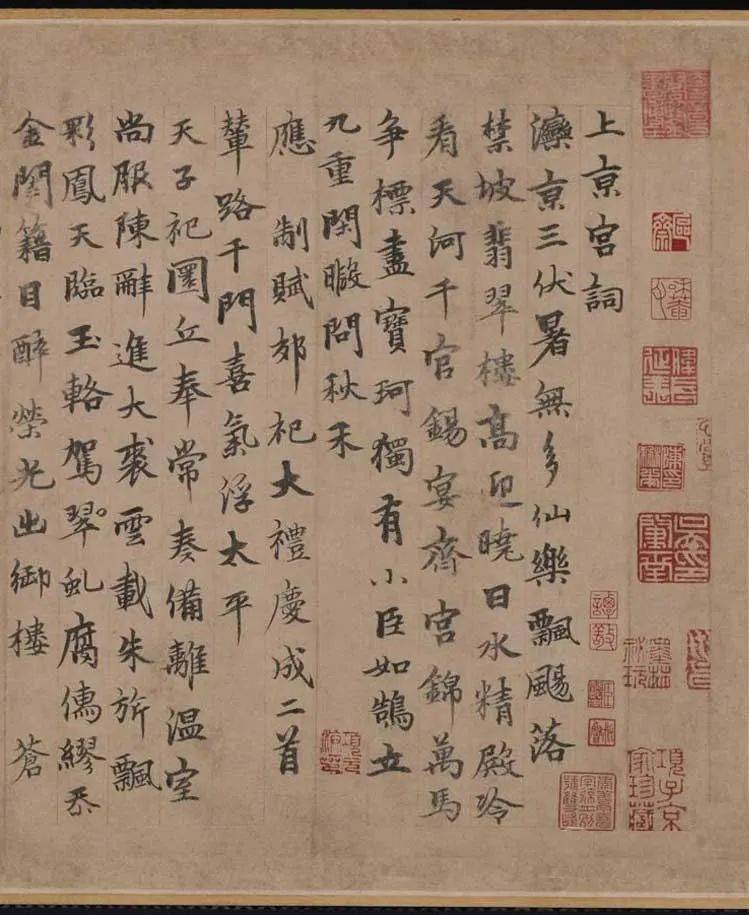 上京宮詞
灤京三伏暑無多仙樂飄颺落
禁坡翡翠樓高迎曉日水精殿冷
看天河千官錫宴齊宮錦萬馬
争標盡寶珂獨有小臣如鵠立
九重閑暇問秋禾
應 制賦郊祀大禮慶成二首
輦路千門喜氣浮太平
天子祀圜丘奉常奏備離温室
尚服陳辭進大裘雲載朱旂飄
彩鳳天臨玉輅駕翠虬腐儒繆忝
金閨籍目醉榮光出御樓 蒼
項子京家珍藏